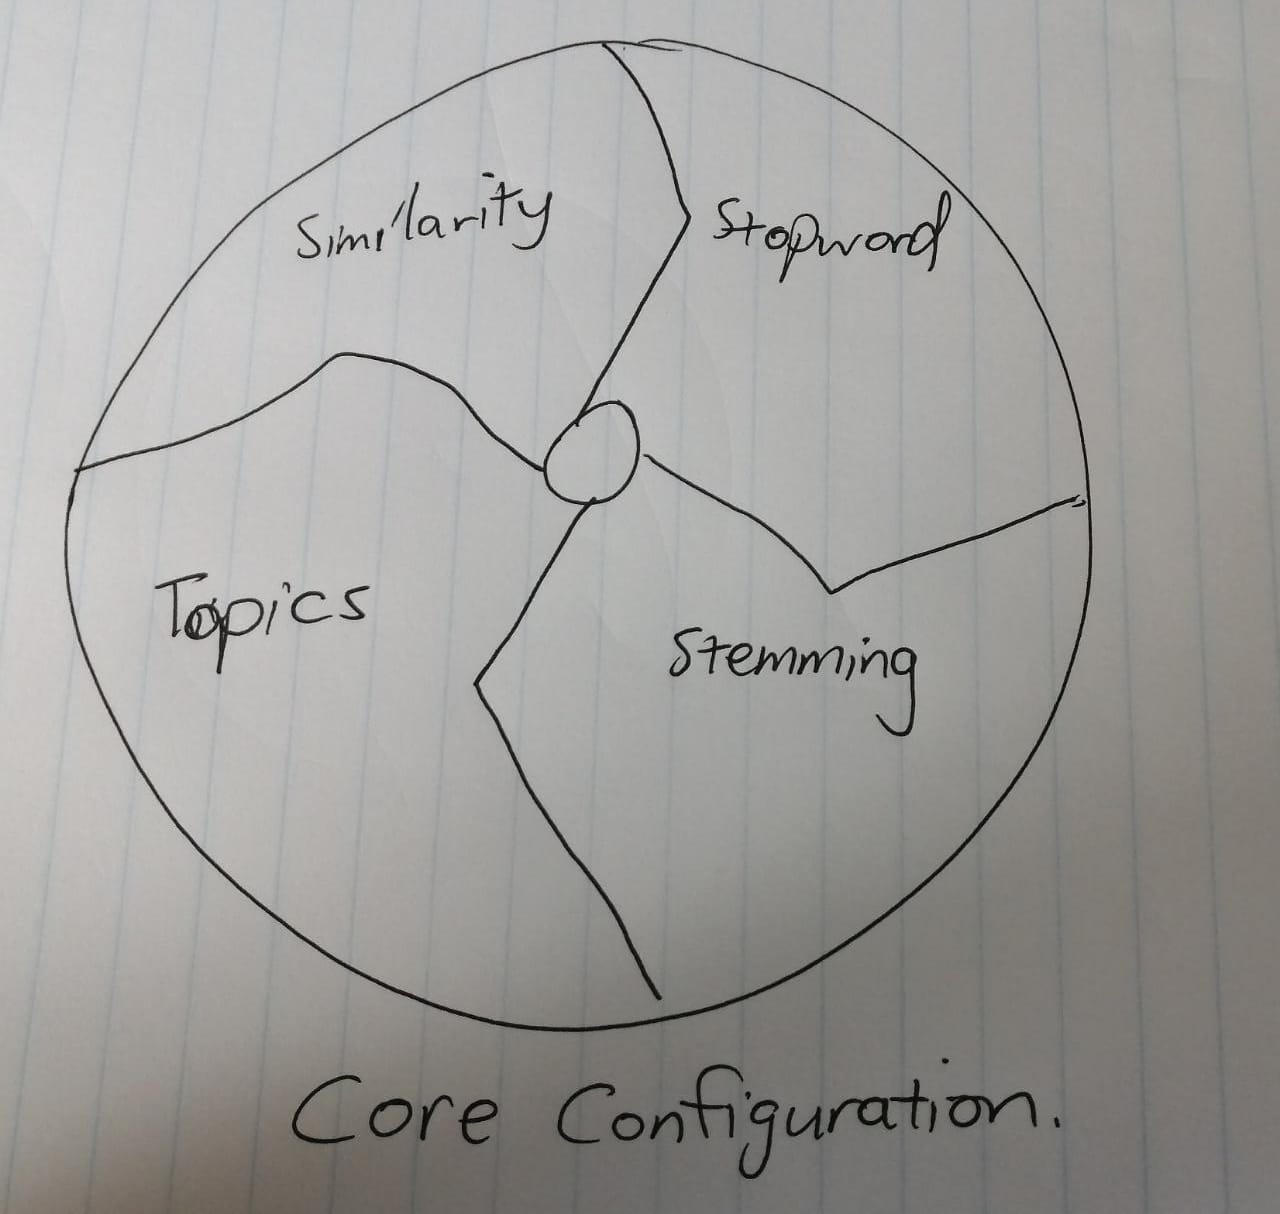 Similarity
Stopword
Topics
Stemming
Core Configuration.